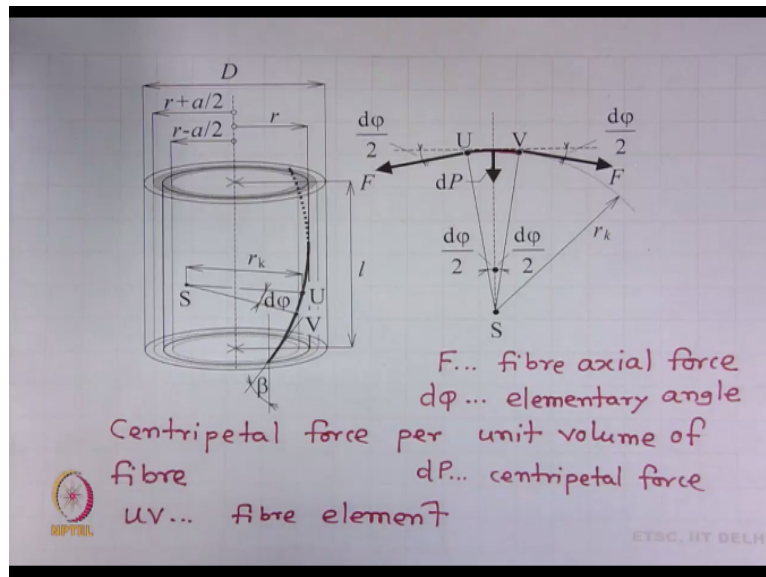 D
r+a/2
r
r-a/2
dφ/2
U V
dφ/2
F
dP
F
r_k
S
dφ
U
V
l
β
dφ/2
dφ/2
r_k
S
F... fibre axial force
dφ... elementary angle
Centripetal force per unit volume of
fibre dP... centripetal force
UV... fibre element
NPTEL
ETSC, IIT DELH